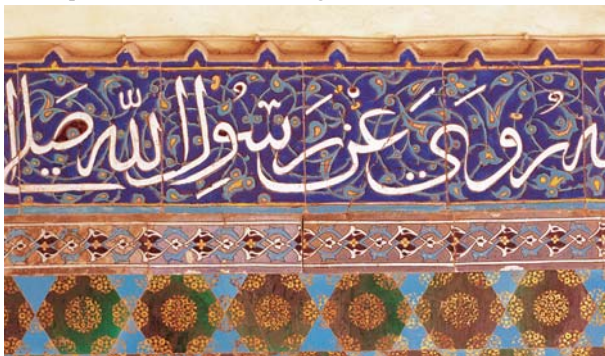 رُوِيَ عَن رَسُولِ اللّٰه صَلَّى